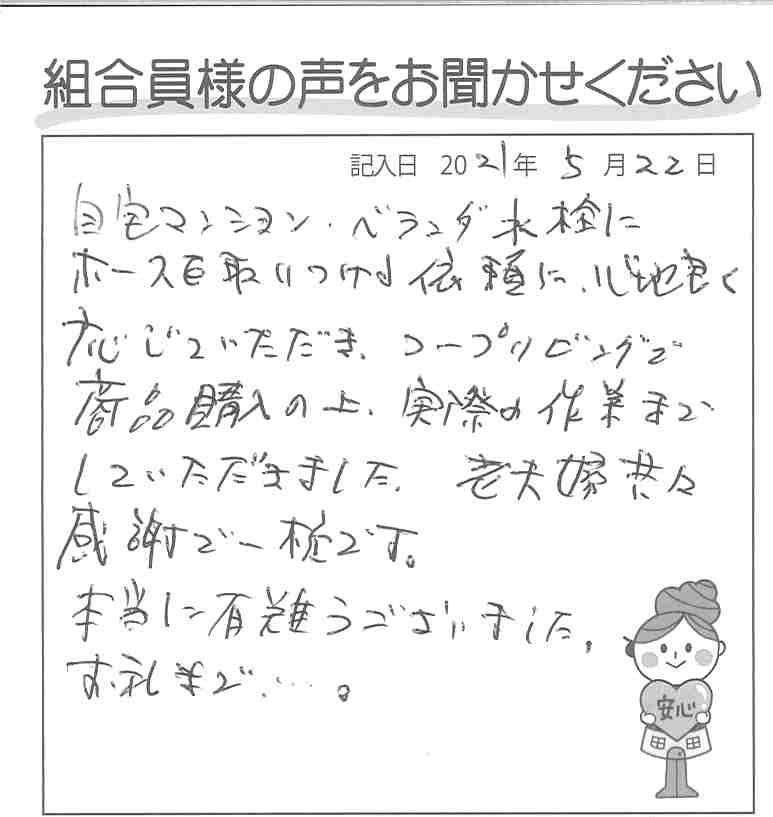 組合員様の声をお聞かせください
記入日 2021年 5月22日
自宅マンション・ベランダ水栓に
ホースを取りつける依頼に、心地良く
応じていただき、コープリビングで
商品購入の上、実際の作業まで
していただきました。老夫婦共々
感謝で一杯です。
本当に有難うございました。
お礼まで……。
安心